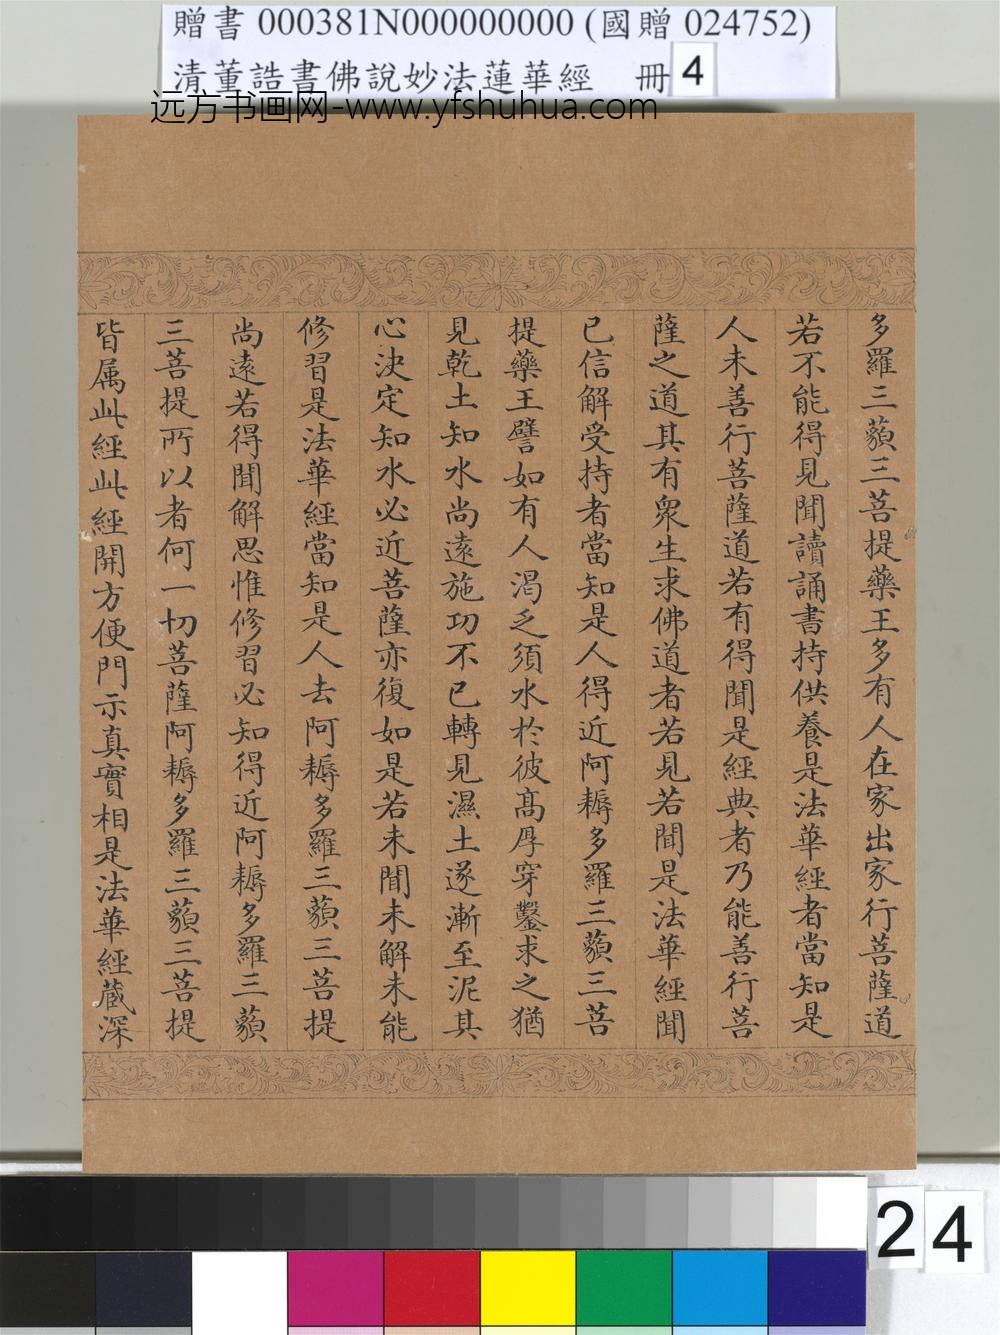 贈書 000381N000000000 (國贈 024752)
清董誥書佛說妙法蓮華經 冊 4
远方书画网-www.yfshuhua.com
多羅三藐三菩提藥王多有人在家出家行菩薩道
若不能得見聞讀誦書持供養是法華經者當知是
人未善行菩薩道若有得聞是經典者乃能善行菩
薩之道其有眾生求佛道者若見若聞是法華經聞
已信解受持者當知是人得近阿耨多羅三藐三菩
提藥王譬如有人渴乏須水於彼高厚穿鑿求之猶
見乾土知水尚遠施功不已轉見濕土遂漸至泥其
心決定知水必近菩薩亦復如是若未聞未解未能
修習是法華經當知是人去阿耨多羅三藐三菩提
尚遠若得聞解思惟修習必知得近阿耨多羅三藐
三菩提所以者何一切菩薩阿耨多羅三藐三菩提
皆属此經此經開方便門示真實相是法華經蔵深
24